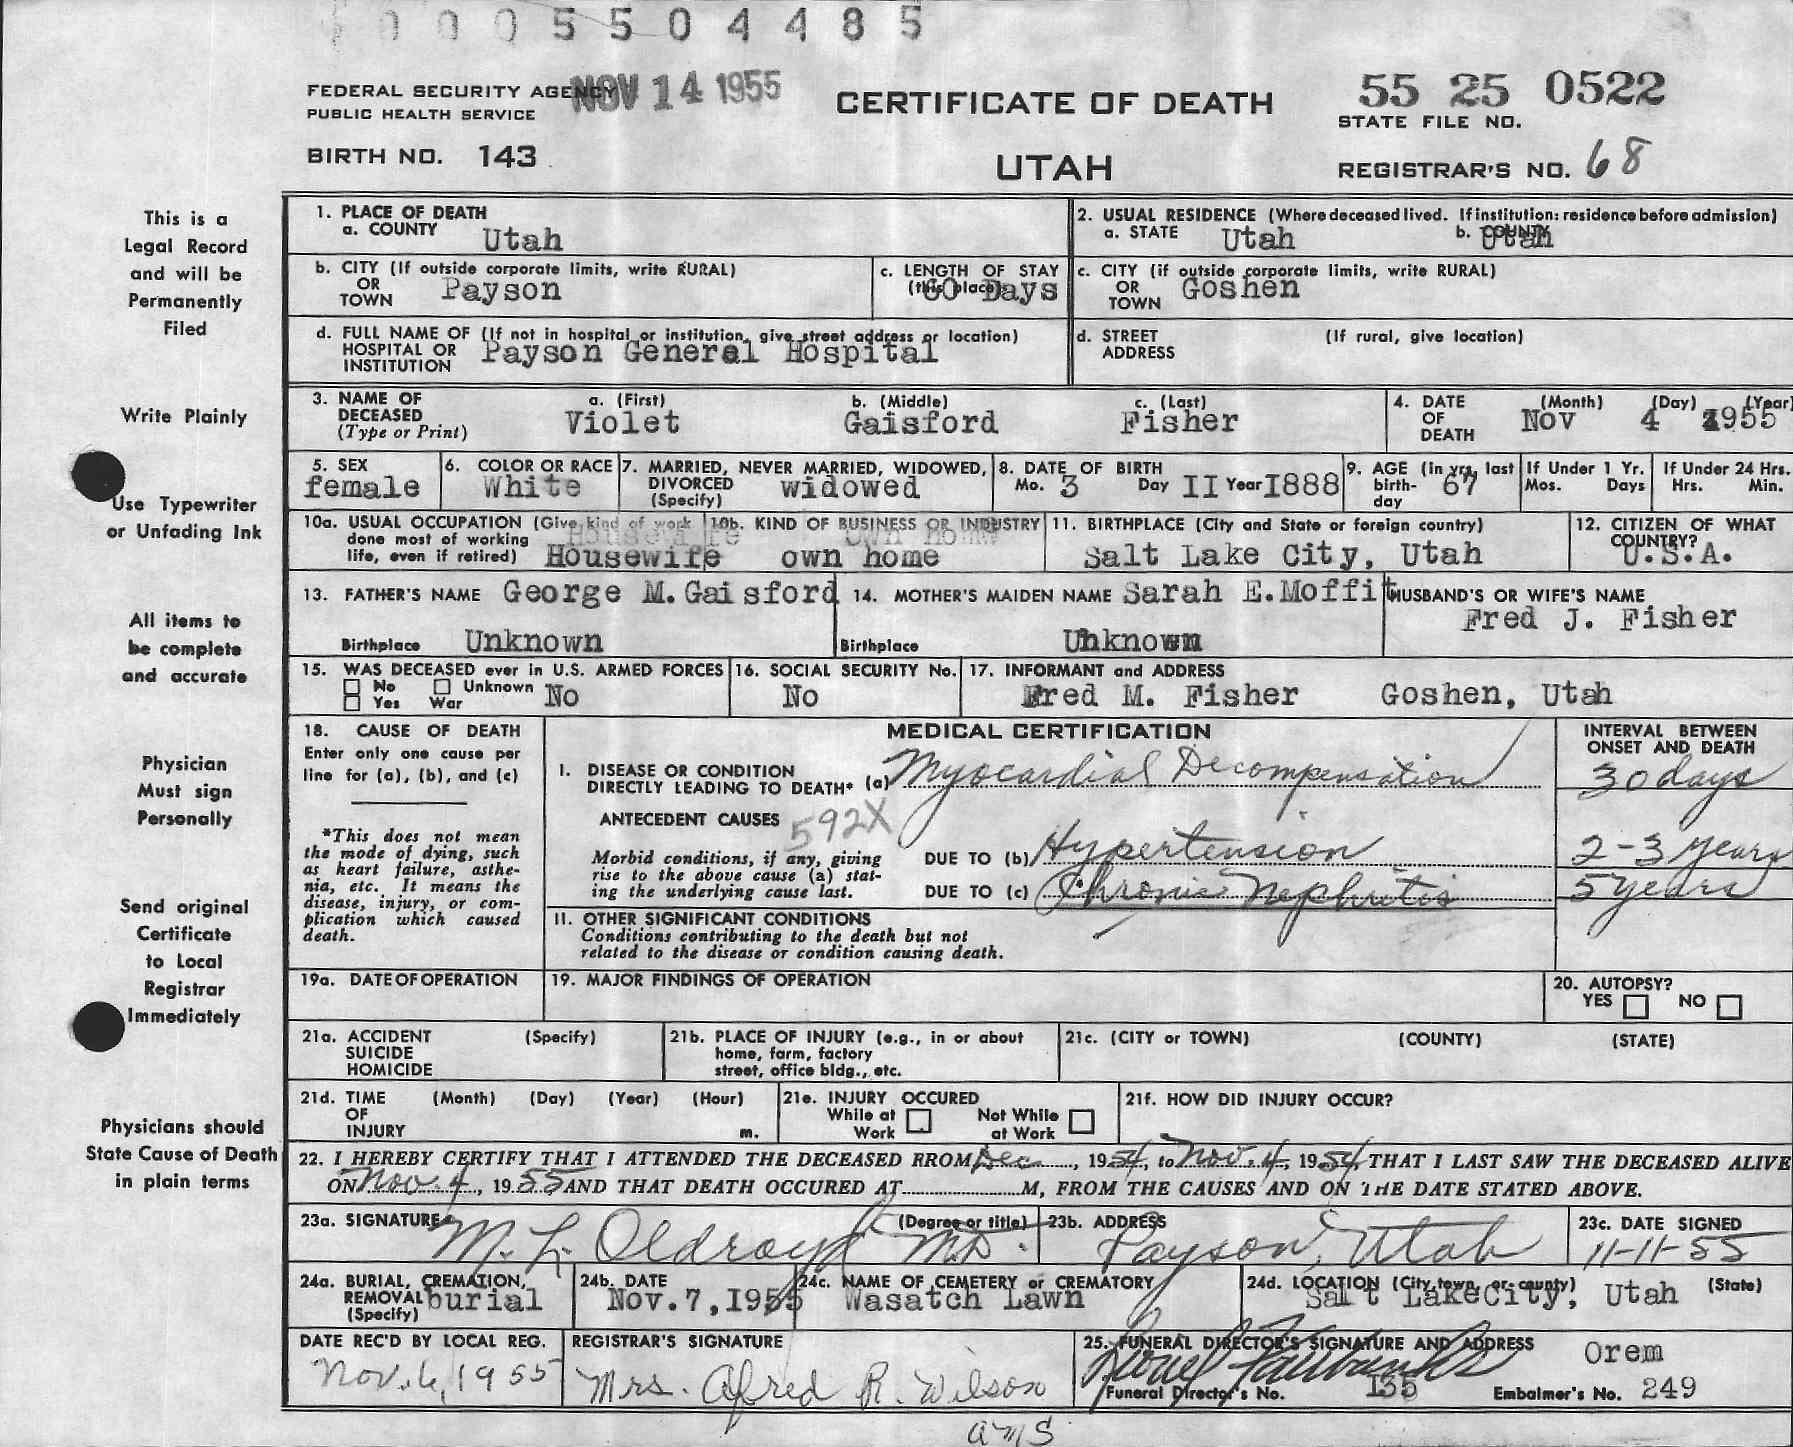 0005504485
FEDERAL SECURITY AGENCY NOV 14 1955
PUBLIC HEALTH SERVICE
CERTIFICATE OF DEATH
55 25 0522
STATE FILE NO.
BIRTH NO. 143
UTAH
REGISTRAR'S NO. 68
This is a
Legal Record
and will be
Permanently
Filed
Write Plainly
Use Typewriter
or Unfading Ink
All items to
be complete
and accurate
Physician
Must sign
Personally
Send original
Certificate
to Local
Registrar
Immediately
Physicians should
State Cause of Death
in plain terms
1. PLACE OF DEATH
a. COUNTY Utah
2. USUAL RESIDENCE (Where deceased lived. If institution: residence before admission)
a. STATE Utah b. COUNTY Utah
b. CITY (If outside corporate limits, write RURAL)
OR
TOWN Payson
c. LENGTH OF STAY
(this place) 60 Days
c. CITY (if outside corporate limits, write RURAL)
OR
TOWN Goshen
d. FULL NAME OF (If not in hospital or institution, give street address or location)
HOSPITAL OR
INSTITUTION Payson General Hospital
d. STREET (If rural, give location)
ADDRESS
3. NAME OF
DECEASED
(Type or Print)
a. (First) b. (Middle) c. (Last)
Violet Gaisford Fisher
4. DATE
OF
DEATH
(Month) (Day) (Year)
Nov 4 1955
5. SEX
female
6. COLOR OR RACE
White
7. MARRIED, NEVER MARRIED, WIDOWED,
DIVORCED
(Specify) widowed
8. DATE OF BIRTH
Mo. 3 Day II Year I888
9. AGE (in yrs. last
birth-
day 67
If Under 1 Yr.
Mos. Days
If Under 24 Hrs.
Hrs. Min.
10a. USUAL OCCUPATION (Give kind of work
done most of working
life, even if retired) Housewife
10b. KIND OF BUSINESS OR INDUSTRY
own home
11. BIRTHPLACE (City and State or foreign country)
Salt Lake City, Utah
12. CITIZEN OF WHAT
COUNTRY?
U.S.A.
13. FATHER'S NAME George M.Gaisford
Birthplace Unknown
14. MOTHER'S MAIDEN NAME Sarah E.Moffit
Birthplace Unknown
HUSBAND'S OR WIFE'S NAME
Fred J. Fisher
15. WAS DECEASED ever in U.S. ARMED FORCES
No Unknown No
Yes War
16. SOCIAL SECURITY No.
No
17. INFORMANT and ADDRESS
Fred M. Fisher Goshen, Utah
18. CAUSE OF DEATH
Enter only one cause per
line for (a), (b), and (c)
*This does not mean
the mode of dying, such
as heart failure, asthe-
nia, etc. It means the
disease, injury, or com-
plication which caused
death.
MEDICAL CERTIFICATION
INTERVAL BETWEEN
ONSET AND DEATH
I. DISEASE OR CONDITION
DIRECTLY LEADING TO DEATH* (a) Myocardial Decompensation 30 days
ANTECEDENT CAUSES 592X
Morbid conditions, if any, giving
rise to the above cause (a) stat-
ing the underlying cause last.
DUE TO (b) Hypertension 2-3 years
DUE TO (c) Chronic Nephritis 5 years
11. OTHER SIGNIFICANT CONDITIONS
Conditions contributing to the death but not
related to the disease or condition causing death.
19a. DATE OF OPERATION
19. MAJOR FINDINGS OF OPERATION
20. AUTOPSY?
YES NO
21a. ACCIDENT (Specify)
SUICIDE
HOMICIDE
21b. PLACE OF INJURY (e.g., in or about
home, farm, factory
street, office bldg., etc.
21c. (CITY or TOWN) (COUNTY) (STATE)
21d. TIME (Month) (Day) (Year) (Hour)
OF
INJURY m.
21e. INJURY OCCURED
While at Not While
Work at Work
21f. HOW DID INJURY OCCUR?
22. I HEREBY CERTIFY THAT I ATTENDED THE DECEASED RROM Dec., 1954, to Nov. 4, 1954, THAT I LAST SAW THE DECEASED ALIVE
ON Nov. 4, 1955 AND THAT DEATH OCCURED AT M, FROM THE CAUSES AND ON THE DATE STATED ABOVE.
23a. SIGNATURE (Degree or title)
M. L. Oldroyd M.D.
23b. ADDRESS
Payson, Utah
23c. DATE SIGNED
11-11-55
24a. BURIAL, CREMATION,
REMOVAL burial
(Specify)
24b. DATE
Nov.7,1955
24c. NAME OF CEMETERY or CREMATORY
Wasatch Lawn
24d. LOCATION (City, town, or county) (State)
Salt LakeCity, Utah
DATE REC'D BY LOCAL REG.
Nov. 6, 1955
REGISTRAR'S SIGNATURE
Mrs. Alfred R. Wilson
25. FUNERAL DIRECTOR'S SIGNATURE AND ADDRESS
Orem
Funeral Director's No. I35 Embalmer's No. 249
ams